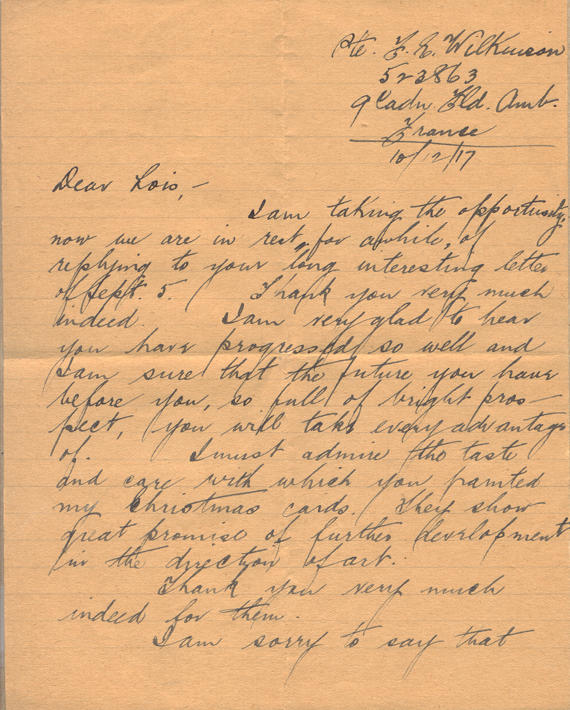 Pte. F. E. Wilkinson
523863
9 Cadn. Fld. Amb.
France
10/12/17
Dear Lois,—
I am taking the opportunity,
now we are in rest, for awhile, of
replying to your long interesting letter
of Sept. 5. Thank you very much
indeed. I am very glad to hear
you have progressed so well and
I am sure that the future you have
before you, so full of bright pros-
pect, you will take every advantage
of. I must admire the taste
and care with which you painted
my Christmas cards. They show
great promise of further development
in the direction of art.
Thank you very much
indeed for them.
I am sorry to say that